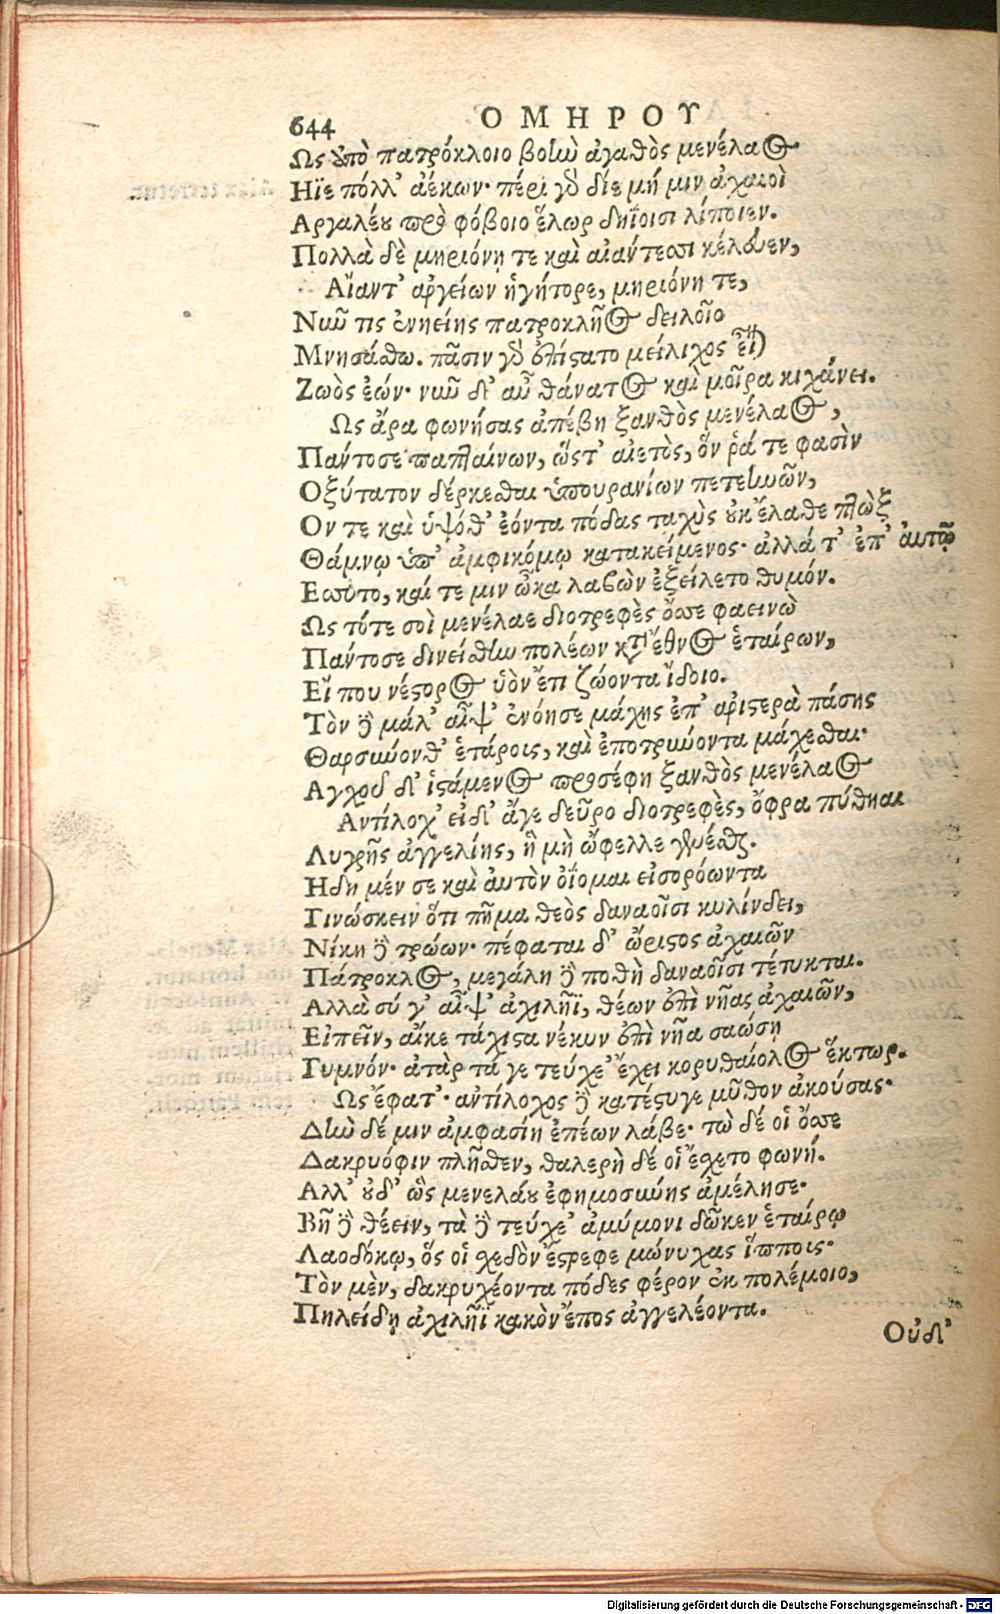 644 ΟΜΗΡΟΥ
Ως ἀπὸ πατρόκλοιο βοὴν ἀγαθὸς μενέλαος
Ηϊε πόλλ' ἀέκων· πέρι γὸ δίε μή μιν ἀχαιοὶ
Αργαλέου πρὸ φόβοιο ἕλωρ δηΐοισι λίποιεν.
Πολλὰ δὲ μηριόνῃ τε καὶ αἰάντεσσι κέλευεν,
Αἴαντ' ἀργείων ἡγήτορε, μηριόνη τε,
Νῦν τις ἐνηείης πατροκλῆος δειλοῖο
Μνησάσθω. πᾶσιν γὸ ἐπίστατο μείλιχος εἶναι
Ζωὸς ἐών· νῦν δ' αὖ θάνατος καὶ μοῖρα κιχάνει.
Ως ἄρα φωνήσας ἀπέβη ξανθὸς μενέλαος,
Πάντοσε παπταίνων, ὥστ' αἰετὸς, ὅν ῥά τε φασὶν
Οξύτατον δέρκεσθαι ὑπουρανίων πετεηνῶν,
Ον τε καὶ ὑψόθ' ἐόντα πόδας ταχὺς οὐκ ἔλαθε πτὼξ
Θάμνῳ ὑπ' ἀμφικόμῳ κατακείμενος· ἀλλά τ' ἐπ' αὐτῷ
Εσσυτο, καί τε μιν ὦκα λαβὼν ἐξείλετο θυμόν.
Ως τότε σοὶ μενέλαε διοτρεφὲς ὄσσε φαεινὼ
Πάντοσε δινείσθην πολέων κατὰ ἔθνος ἑταίρων,
Εἴ που νέστορος ὑὸν ἔτι ζώοντα ἴδοιο.
Τὸν δὲ μάλ' αἶψ' ἐνόησε μάχης ἐπ' ἀριστερὰ πάσης
Θαρσύνονθ' ἑτάροις, καὶ ἐποτρύνοντα μάχεσθαι·
Αγχοῦ δ' ἱστάμενος προσέφη ξανθὸς μενέλαος
Αντίλοχ' εἰ δ' ἄγε δεῦρο διοτρεφὲς, ὄφρα πύθηαι
Λυγρῆς ἀγγελίης, ἣ μὴ ὤφελλε γενέσθαι.
Ηδη μέν σε καὶ αὐτὸν ὀΐομαι εἰσορόωντα
Γινώσκειν ὅτι πῆμα θεὸς δαναοῖσι κυλίνδει,
Νίκη δὲ τρώων· πέφαται δ' ὤριστος ἀχαιῶν
Πάτροκλος, μεγάλη δὲ ποθὴ δαναοῖσι τέτυκται.
Αλλὰ σύ γ' αἶψ' ἀχιλῆϊ, θέων ἐπὶ νῆας ἀχαιῶν,
Εἰπεῖν, αἴκε τάχιστα νέκυν ἐπὶ νῆα σαώσῃ
Γυμνόν· ἀτὰρ τά γε τεύχε' ἔχει κορυθαίολος ἕκτωρ.
Ως ἔφατ'· ἀντίλοχος δὲ κατέστυγε μῦθον ἀκούσας·
Δὴν δέ μιν ἀμφασίη ἐπέων λάβε· τὼ δέ οἱ ὄσσε
Δακρυόφιν πλῆσθεν, θαλερὴ δέ οἱ ἔσχετο φωνή.
Αλλ' οὐδ' ὣς μενελάου ἐφημοσύνης ἀμέλησε·
Βῆ δὲ θέειν, τὰ δὲ τεύχε' ἀμύμονι δῶκεν ἑταίρῳ
Λαοδόκῳ, ὅς οἱ σχεδὸν ἔστρεφε μώνυχας ἵππους·
Τὸν μὲν, δακρυχέοντα πόδες φέρον ἐκ πολέμοιο,
Πηλείδῃ ἀχιλῆϊ κακὸν ἔπος ἀγγελέοντα.
Οὐδ'
Digitalisierung gefördert durch die Deutsche Forschungsgemeinschaft - DFG